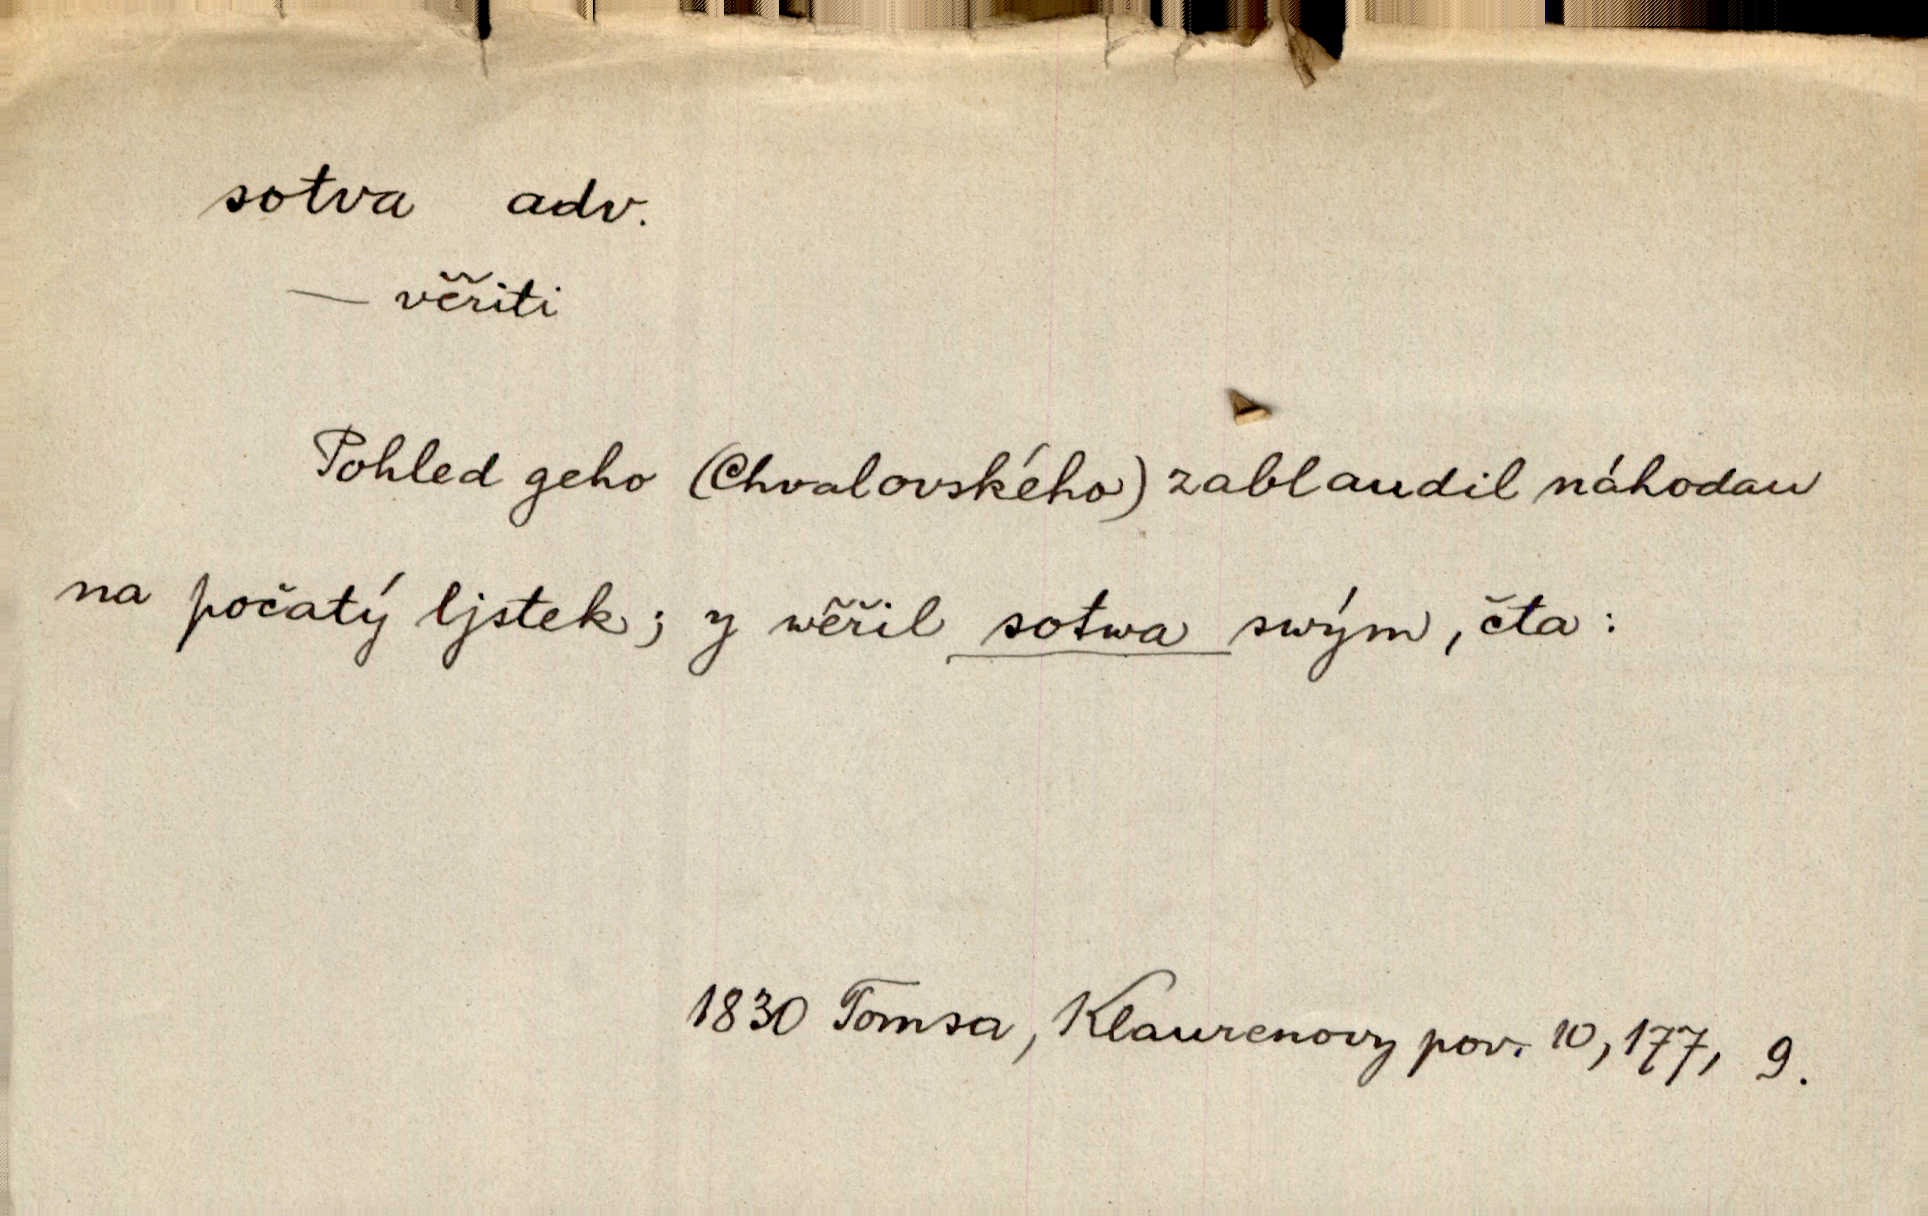 sotva adv.
— věřiti
Pohled geho (Chvalovského) zablaudil náhodau
na počatý ljstek; y wěřil sotwa swým, čta:
1830 Tomsa, Klaurenovy pov. 10, 177, 9.